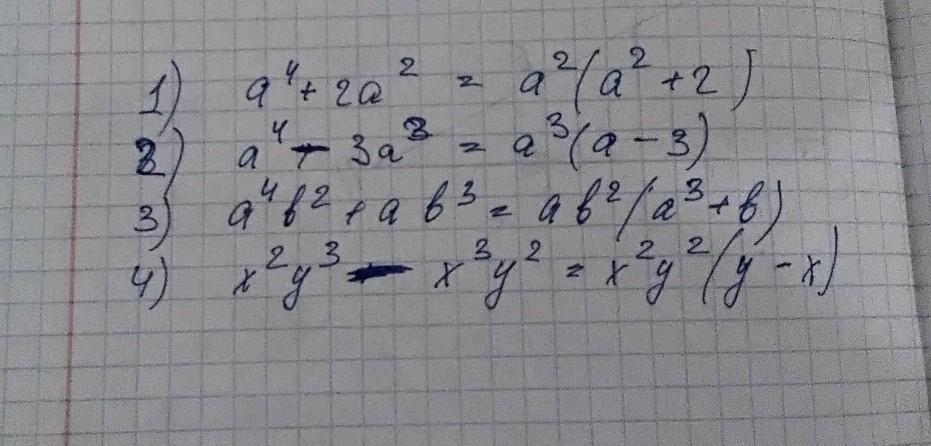 1) a⁴ + 2a² = a²(a² + 2)
2) a⁴ - 3a³ = a³(a - 3)
3) a⁴b² + ab³ = ab²(a³ + b)
4) x²y³ - x³y² = x²y²(y - x)